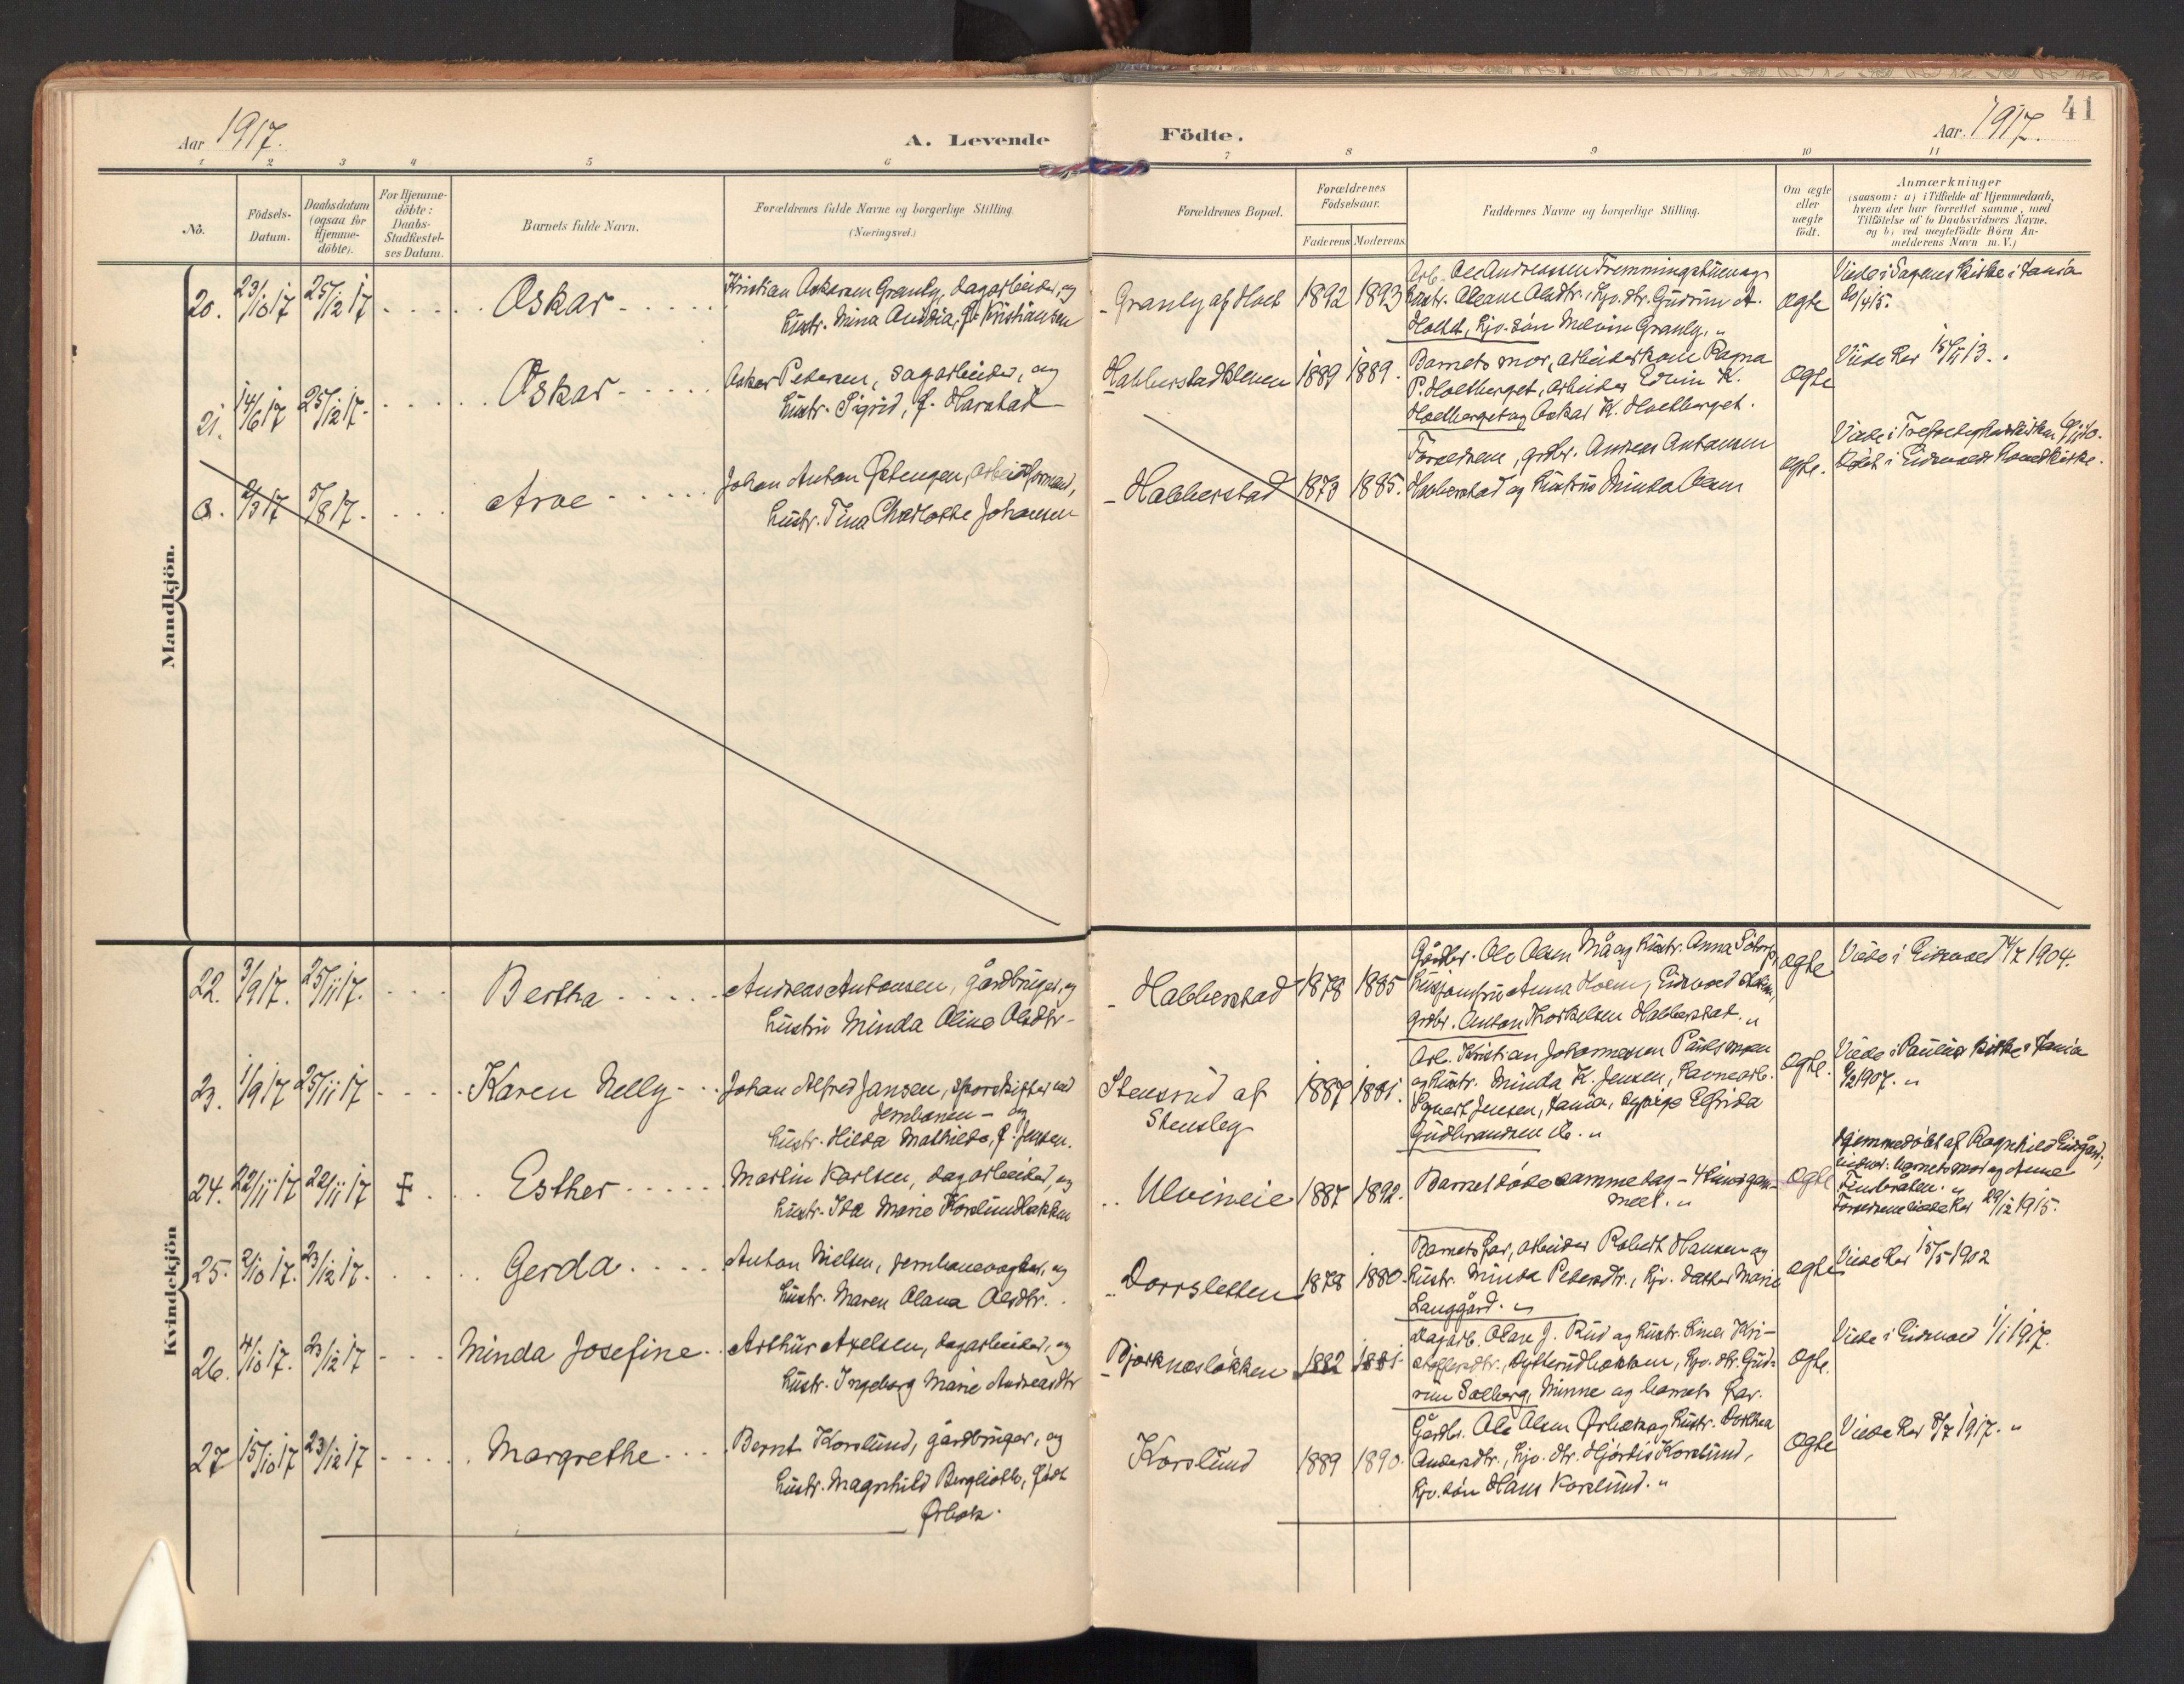 Aar 1917.
A. Levende Födte.
Aar 1917.
41
1 2 3 4 5 6 7 8 9 10 11
No.
Födsels-Datum.
Daabsdatum (ogsaa for Hjemme-döbte).
For Hjemme-döbte: Daabs-Stadfestel-ses Datum.
Barnets fulde Navn.
Forældrenes fulde Navne og borgerlige Stilling. (Næringsvei.)
Forældrenes Bopæl.
Forældrenes Födselsaar.
Faderens Moderens
Faddernes Navne og borgerlige Stilling.
Om ægte eller uægte födt.
Anmærkninger
(saasom: a) i Tilfælde af Hjemmedaab,
hvem der har forrettet samme, med
Tilföielse af to Daabsvidners Navne,
og b) ved uægtefödte Börn An-
melderens Navn m. V.)
Mandkjön.
20. 23/10 17 25/12 17 Oskar
Kristian Oskarsen Granly, dagarbeider, og
hustr. Mina Amalia, f. Kristiansen
Granly af Holt 1892 1893
Arb. Ole Andreassen
hustr. Oleane Olsdtr., Gudrun A.
Holtet, søn Melvin Granly. „
ægte
Viede i Sagens kirke i
20/4 15.
21. 14/6 17 25/12 17. Oskar
Oskar Petersen, sagarbeider, og
hustr. Sigrid, f. Harstad
1889 1889.
Barnets mor, arbeiderkone Ragna
P. Holtberget, arbeider Edvin K.
Holtberget og Oskar K. Holtberget.
ægte
Viede her 15/5 13.
a. 2/3 17 5/8 17. Arve
Johan Anton Østengen, arbeidsformand,
hustr. Tina Charlotte Johansen
Habberstad 1873 1885.
Forældrene, grdbr. Andreas Antonsen
Habberstad og hustru Minda
ægte.
Viede i
Døbt i Eidsvolds hovedkirke.
Kvindekjön
22. 3/9 17. 25/11 17. Bertha
Andreas Antonsen, gårdbruger, og
hustru Minda Oline Olsdtr.
Habberstad 1878 1885
Gårdbr. Ole Olsen og hustr. Anna
husjomfru Anna Holm, Eidsvold
grdbr. Anton Thorkelsen Habberstad. „
ægte
Viede i Eidsvold 1904.
23. 1/9 17 25/11 17 Karen Nelly
Johan Alfred Jansen, sporskifter ved
Jernbanen - og
hustr. Hilda Mathilde, f. Jensen.
Stensrud af
Stensby
1887 1881.
Arb. Kristian Johannessen
og hustr. Minda K. Jensen,
Jensen, sypige Elfrida
Gudbrandsen
ægte.
Viede i Paulus kirke
1907. „
24. 22/11 17 22/11 17 Esther
Martin Karlsen, dagarbeider, og
hustr. Ida Marie Korslundbakken
Ulvineie 1887 1892.
Barnet døde samme dag - 4 timer gam-
melt. „
ægte
Hjemmedøbt af Ragnhild
barnets mor og Anne
Forældrene viede her 29/12 1915.
25. 2/10 17. 23/12 17. Gerda
Anton Nielsen, jernbanevogter, og
hustr. Maren Olava Olsdtr.
Dorrsletten 1878 1880.
Barnets far, arbeider Robert Hansen og
hustr. Minda Petersdtr., hjv. datter Marie
Langgård. „
ægte
Viede her 15/5 1902
26. 4/10 17. 23/12 17 Minda Josefine.
Arthur Axelsen, dagarbeider, og
hustr. Ingeborg Marie Andreasdtr
Bjørknesløkken 1882 1881.
Dagarb. Olaf J. Rud og hustr. Kri-
stoffersdtr., hjv. dtr. Gud-
run Solberg, Minne og barnets far.
ægte.
Viede i Eidsvold 1/1 1917.
27 15/10 17 23/12 17 Margrethe.
Bernt Korslund, gårdbruger, og
hustr. Magnhild Bergliotte, født
Ørbæk.
Korslund 1889 1890.
Gårdbr. Ole Olsen Ørbæk og hustr. Dorthea
Andersdtr., hjv. dtr. Hjørdis Korslund,
hjv. søn Hans Korslund. „
ægte
Viede her 8/7 1917. „